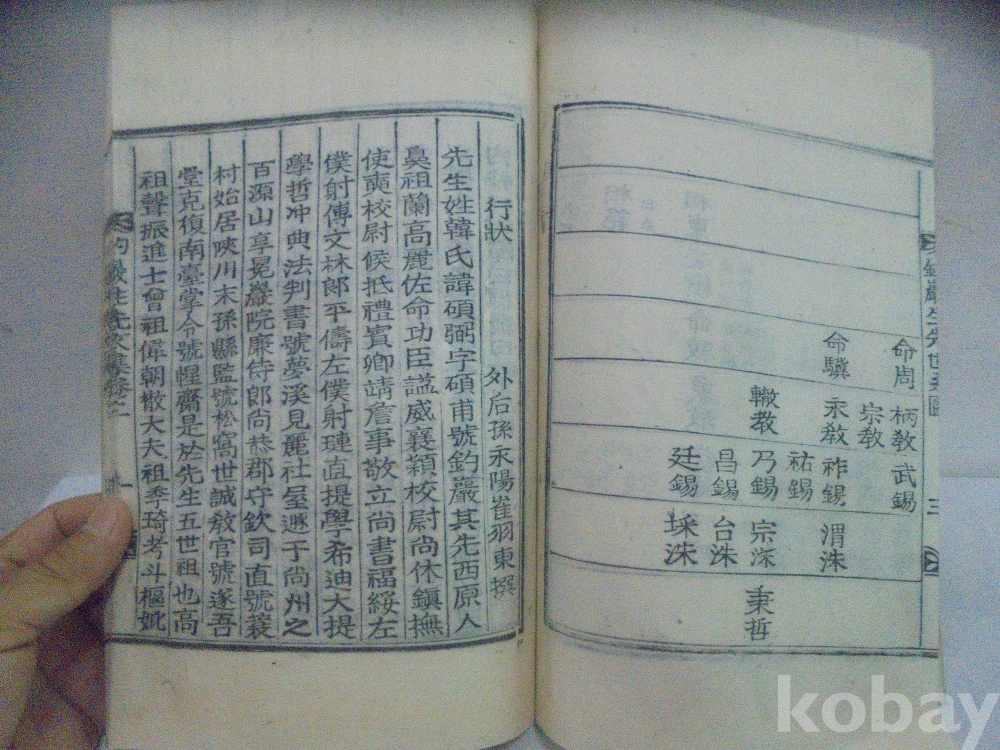 命周
命驥
柄教
宗教
永教
轍教
武錫
祚錫
祐錫
乃錫
昌錫
廷錫
渭洙
宗洙
台洙
埰洙
秉哲
三
行狀
外后孫永陽崔羽東撰
先生姓韓氏諱碩弼字碩甫號釣巖其先西原人
鼻祖蘭高麗佐命功臣諡威襄穎校尉尚休鎭撫
使奭校尉候抵禮賓卿請詹事敬立尚書福綏左
僕射傅文林郞平儔左僕射璉直提學希迪大提
學哲冲典法判書號夢溪見麗社屋遯于尚州之
百源山享冕巖院廉侍郞尚恭郡守欽司直號蓑
村始居陜川末孫縣監號松窩世誠敎官號遂吾
堂克復南臺掌令號惺齋是於先生五世祖也高
祖聲振進士曾祖偉朝散大夫祖季琦考斗樞妣
一
kobay